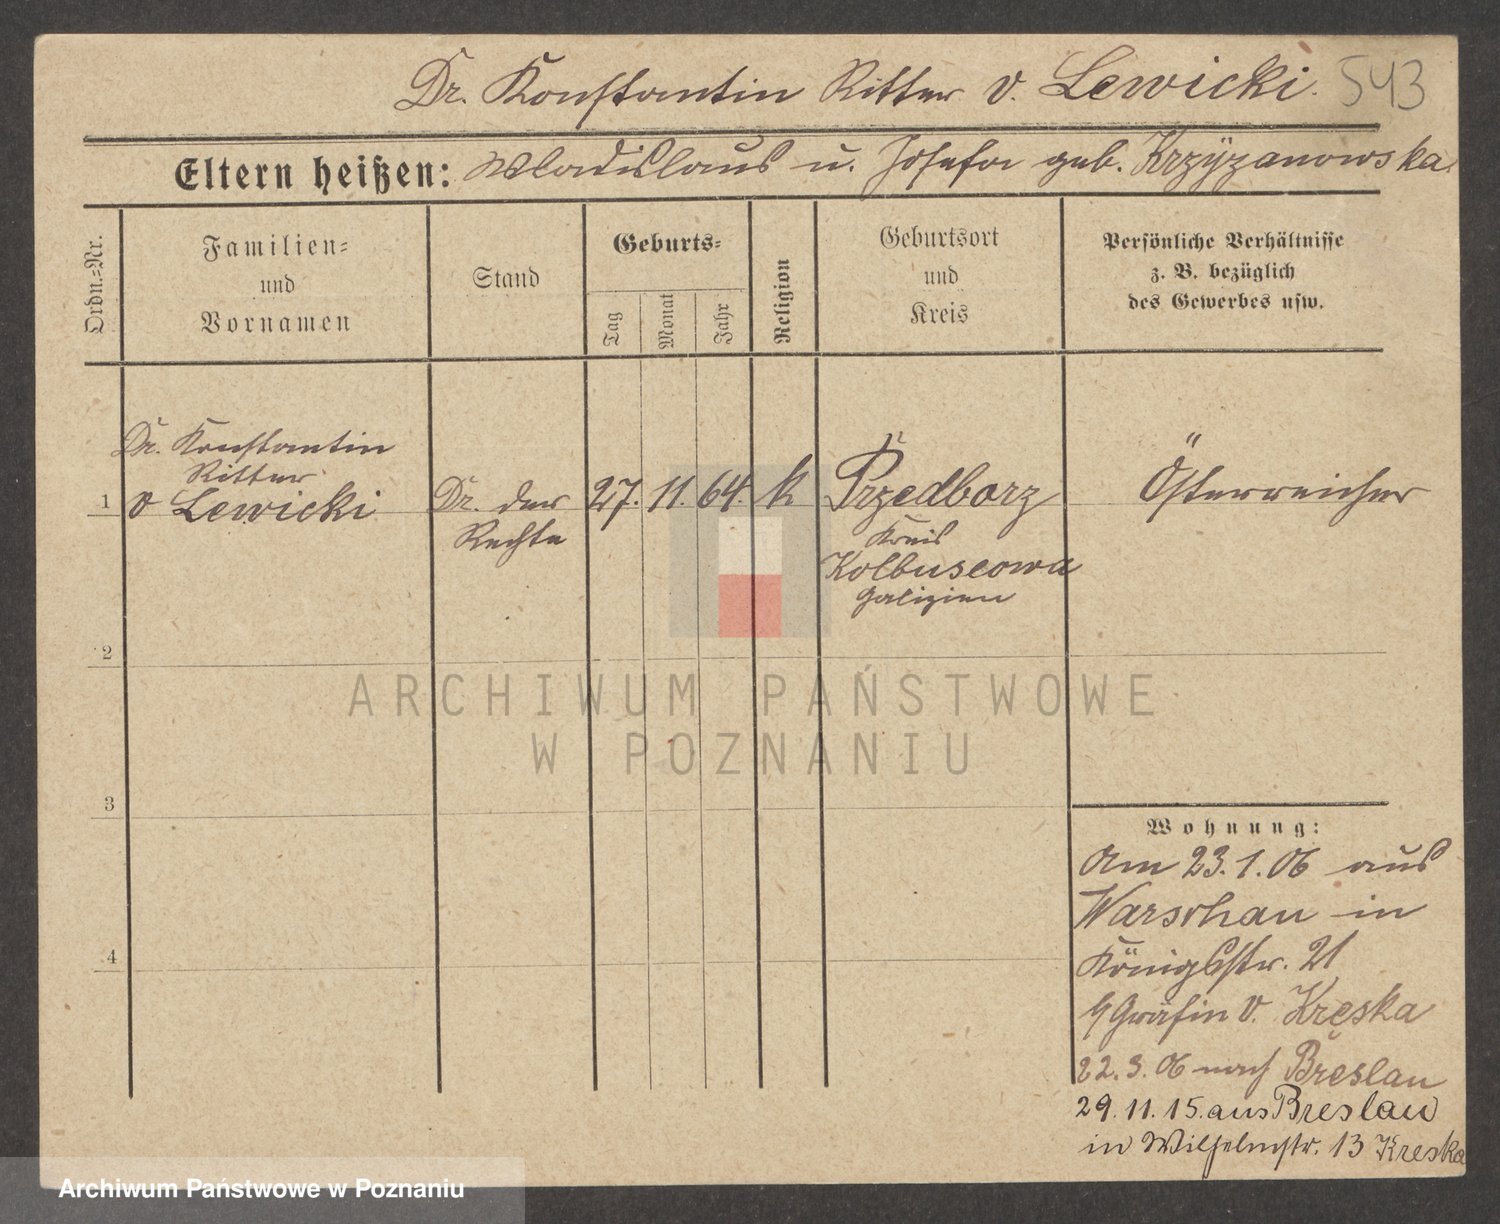 Dr. Konstantin Ritter v. Lewicki. 543
Eltern heißen: Wladislaus u. Josefa geb. Krzyzanowska.
Ordn.=Nr.
Familien=
und
Vornamen
Stand
Geburts=
Tag
Monat
Jahr
Religion
Geburtsort
und
Kreis
Persönliche Verhältnisse
z. B. bezüglich
des Gewerbes usw.
1
Dr. Konstantin
Ritter
v Lewicki
Dr. der
Rechte
27. 11. 64. k
Przedborz
Kreis
Kolbuscowa
Galizien
Österreicher
2
3
4
Wohnung:
Am 23.1.06 aus
Warschau in
Königsstr. 21
Gräfin v. Kręska
22.3.06 nach Breslau
29.11.15. aus Breslau
in Wilhelmstr. 13 Kreska
ARCHIWUM PAŃSTWOWE
W POZNANIU
Archiwum Państwowe w Poznaniu